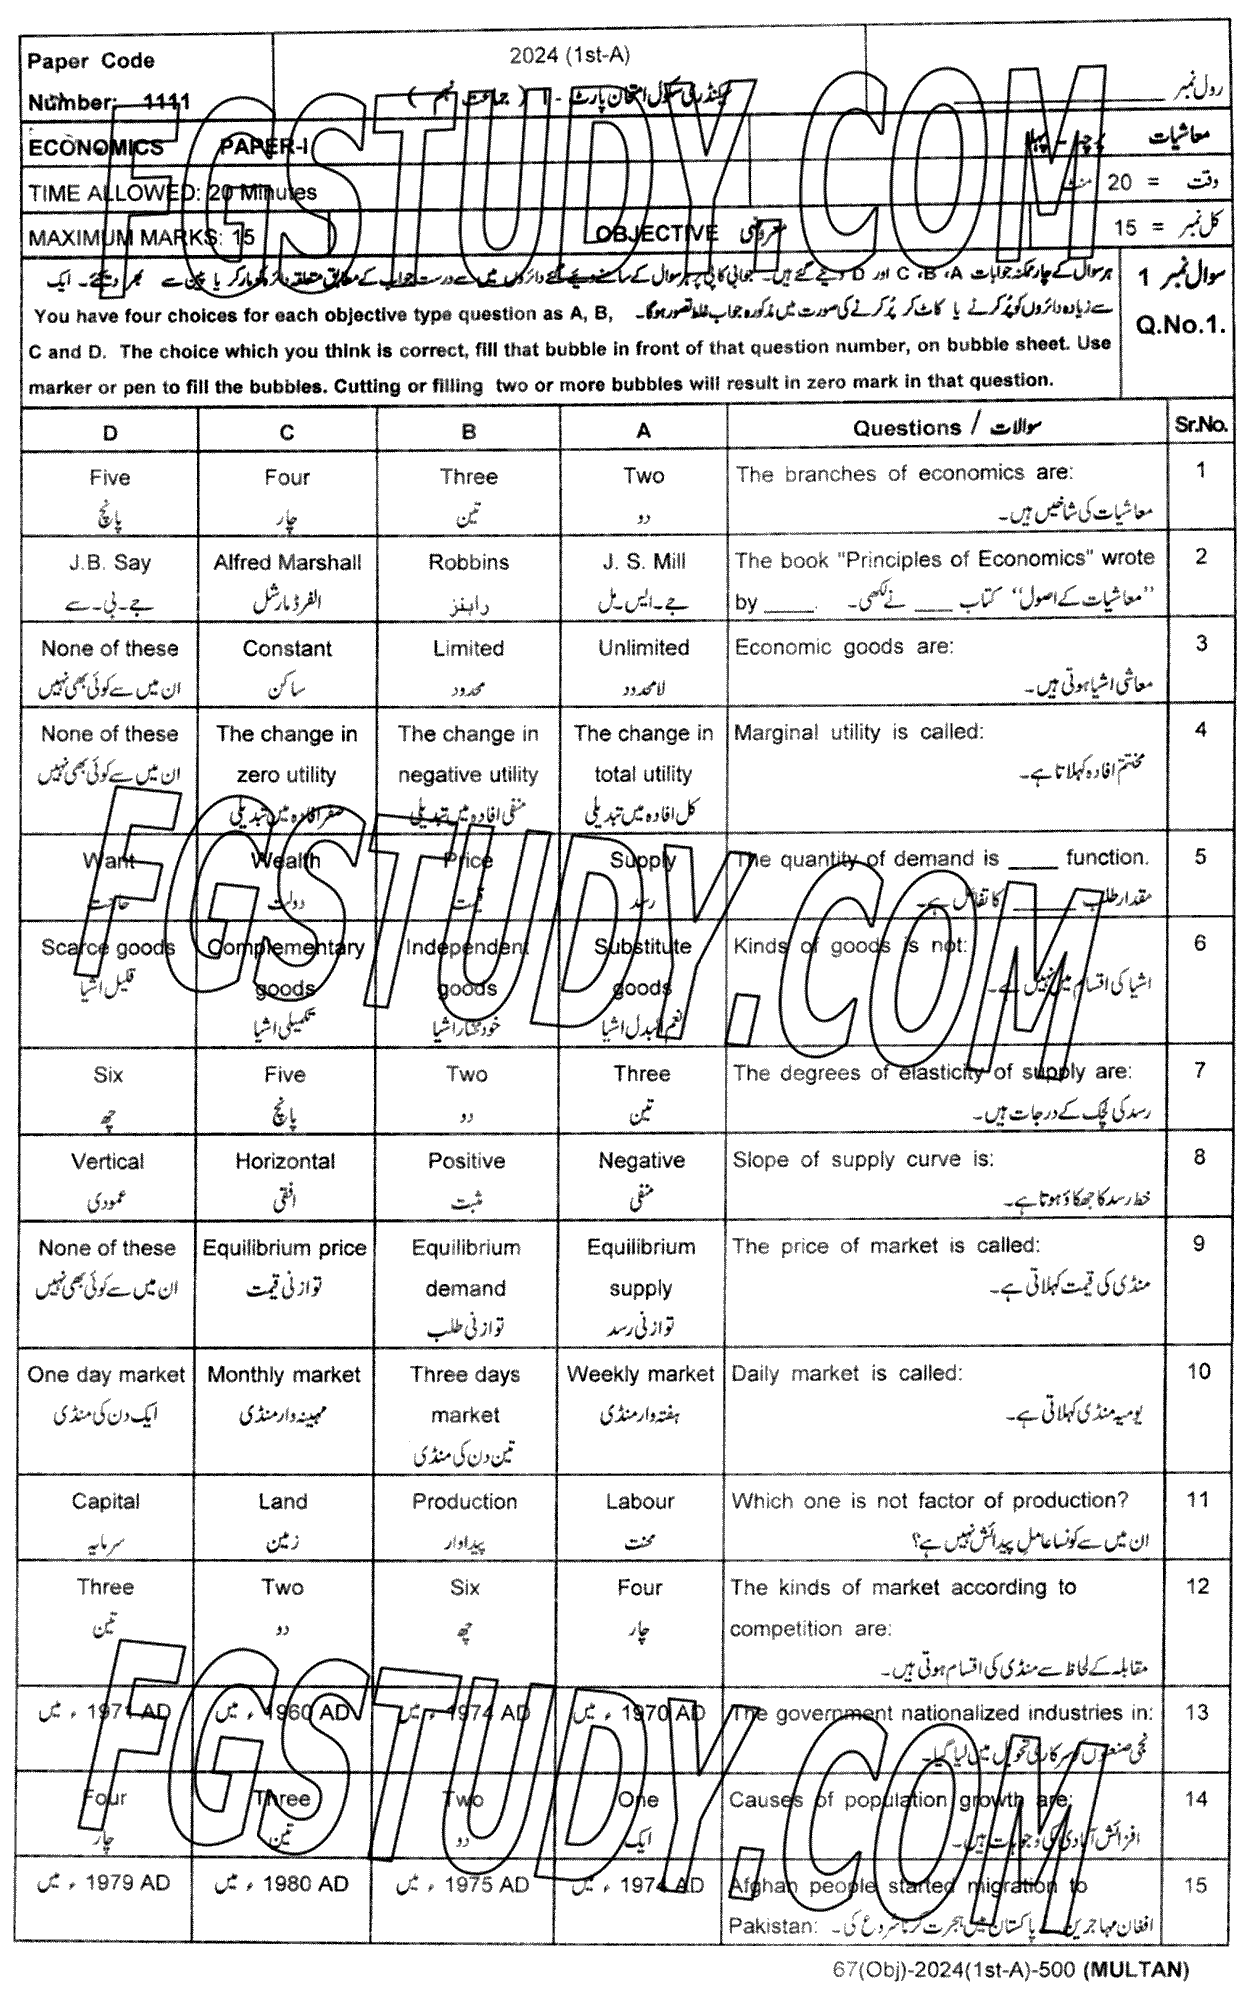 Paper Code
2024 (1st-A)
Number: 1111
سیکنڈری سکول امتحان پارٹ - I ( جماعت نہم )
رول نمبر ____________
ECONOMICS PAPER-I
معاشیات پرچہ - پہلا
TIME ALLOWED: 20 Minutes
وقت = 20 منٹ
MAXIMUM MARKS: 15
OBJECTIVE معروضی
کل نمبر = 15
سوال نمبر 1
Q.No.1.
ہر سوال کے چار ممکنہ جوابات A، B، C اور D دیئے گئے ہیں۔ جوابی کاپی پر ہر سوال کے سامنے دیئے گئے دائروں میں سے درست جواب کے مطابق متعلقہ دائرہ کو مارکر یا پین سے بھر دیجئے۔ ایک
سے زیادہ دائروں کو پُر کرنے یا کاٹ کر پُر کرنے کی صورت میں مذکورہ جواب غلط تصور ہوگا۔
You have four choices for each objective type question as A, B,
C and D. The choice which you think is correct, fill that bubble in front of that question number, on bubble sheet. Use
marker or pen to fill the bubbles. Cutting or filling two or more bubbles will result in zero mark in that question.
D C B A Questions / سوالات Sr.No.
Five Four Three Two The branches of economics are: 1
پانچ چار تین دو معاشیات کی شاخیں ہیں۔
J.B. Say Alfred Marshall Robbins J. S. Mill The book "Principles of Economics" wrote 2
جے۔بی۔سے الفرڈ مارشل رابنز جے۔ایس۔مل by ____ "معاشیات کے اصول" کتاب ___ نے لکھی۔
None of these Constant Limited Unlimited Economic goods are: 3
ان میں سے کوئی بھی نہیں ساکن محدود لامحدود معاشی اشیا ہوتی ہیں۔
None of these The change in The change in The change in Marginal utility is called: 4
ان میں سے کوئی بھی نہیں zero utility negative utility total utility مختتم افادہ کہلاتا ہے۔
صفر افادہ میں تبدیلی منفی افادہ میں تبدیلی کل افادہ میں تبدیلی
Want Wealth Price Supply The quantity of demand is ____ function. 5
حاجت دولت قیمت رسد مقدار طلب _____ کا تفاعل ہے۔
Scarce goods Complementary Independent Substitute Kinds of goods is not: 6
قلیل اشیا goods goods goods اشیا کی اقسام میں نہیں ہے۔
تکمیلی اشیا خود مختار اشیا نعم البدل اشیا
Six Five Two Three The degrees of elasticity of supply are: 7
چھ پانچ دو تین رسد کی لچک کے درجات ہیں۔
Vertical Horizontal Positive Negative Slope of supply curve is: 8
عمودی افقی مثبت منفی خط رسد کا جھکاؤ ہوتا ہے۔
None of these Equilibrium price Equilibrium Equilibrium The price of market is called: 9
ان میں سے کوئی بھی نہیں توازنی قیمت demand supply منڈی کی قیمت کہلاتی ہے۔
توازنی طلب توازنی رسد
One day market Monthly market Three days Weekly market Daily market is called: 10
ایک دن کی منڈی مہینہ وار منڈی market ہفتہ وار منڈی یومیہ منڈی کہلاتی ہے۔
تین دن کی منڈی
Capital Land Production Labour Which one is not factor of production? 11
سرمایہ زمین پیداوار محنت ان میں سے کونسا عامل پیدائش نہیں ہے؟
Three Two Six Four The kinds of market according to 12
تین دو چھ چار competition are:
مقابلہ کے لحاظ سے منڈی کی اقسام ہوتی ہیں۔
1971 AD ء میں 1960 AD ء میں 1974 AD ء میں 1970 AD ء میں The government nationalized industries in: 13
نجی صنعتوں کو سرکاری تحویل میں لیا گیا۔
Four Three Two One Causes of population growth are: 14
چار تین دو ایک افزائش آبادی کی وجوہات ہیں۔
1979 AD ء میں 1980 AD ء میں 1975 AD ء میں 1974 AD ء میں Afghan people started migration to 15
Pakistan: افغان مہاجرین نے پاکستان میں ہجرت کرنا شروع کی۔
67(Obj)-2024(1st-A)-500 (MULTAN)
FGSTUDY.COM
FGSTUDY.COM
FGSTUDY.COM